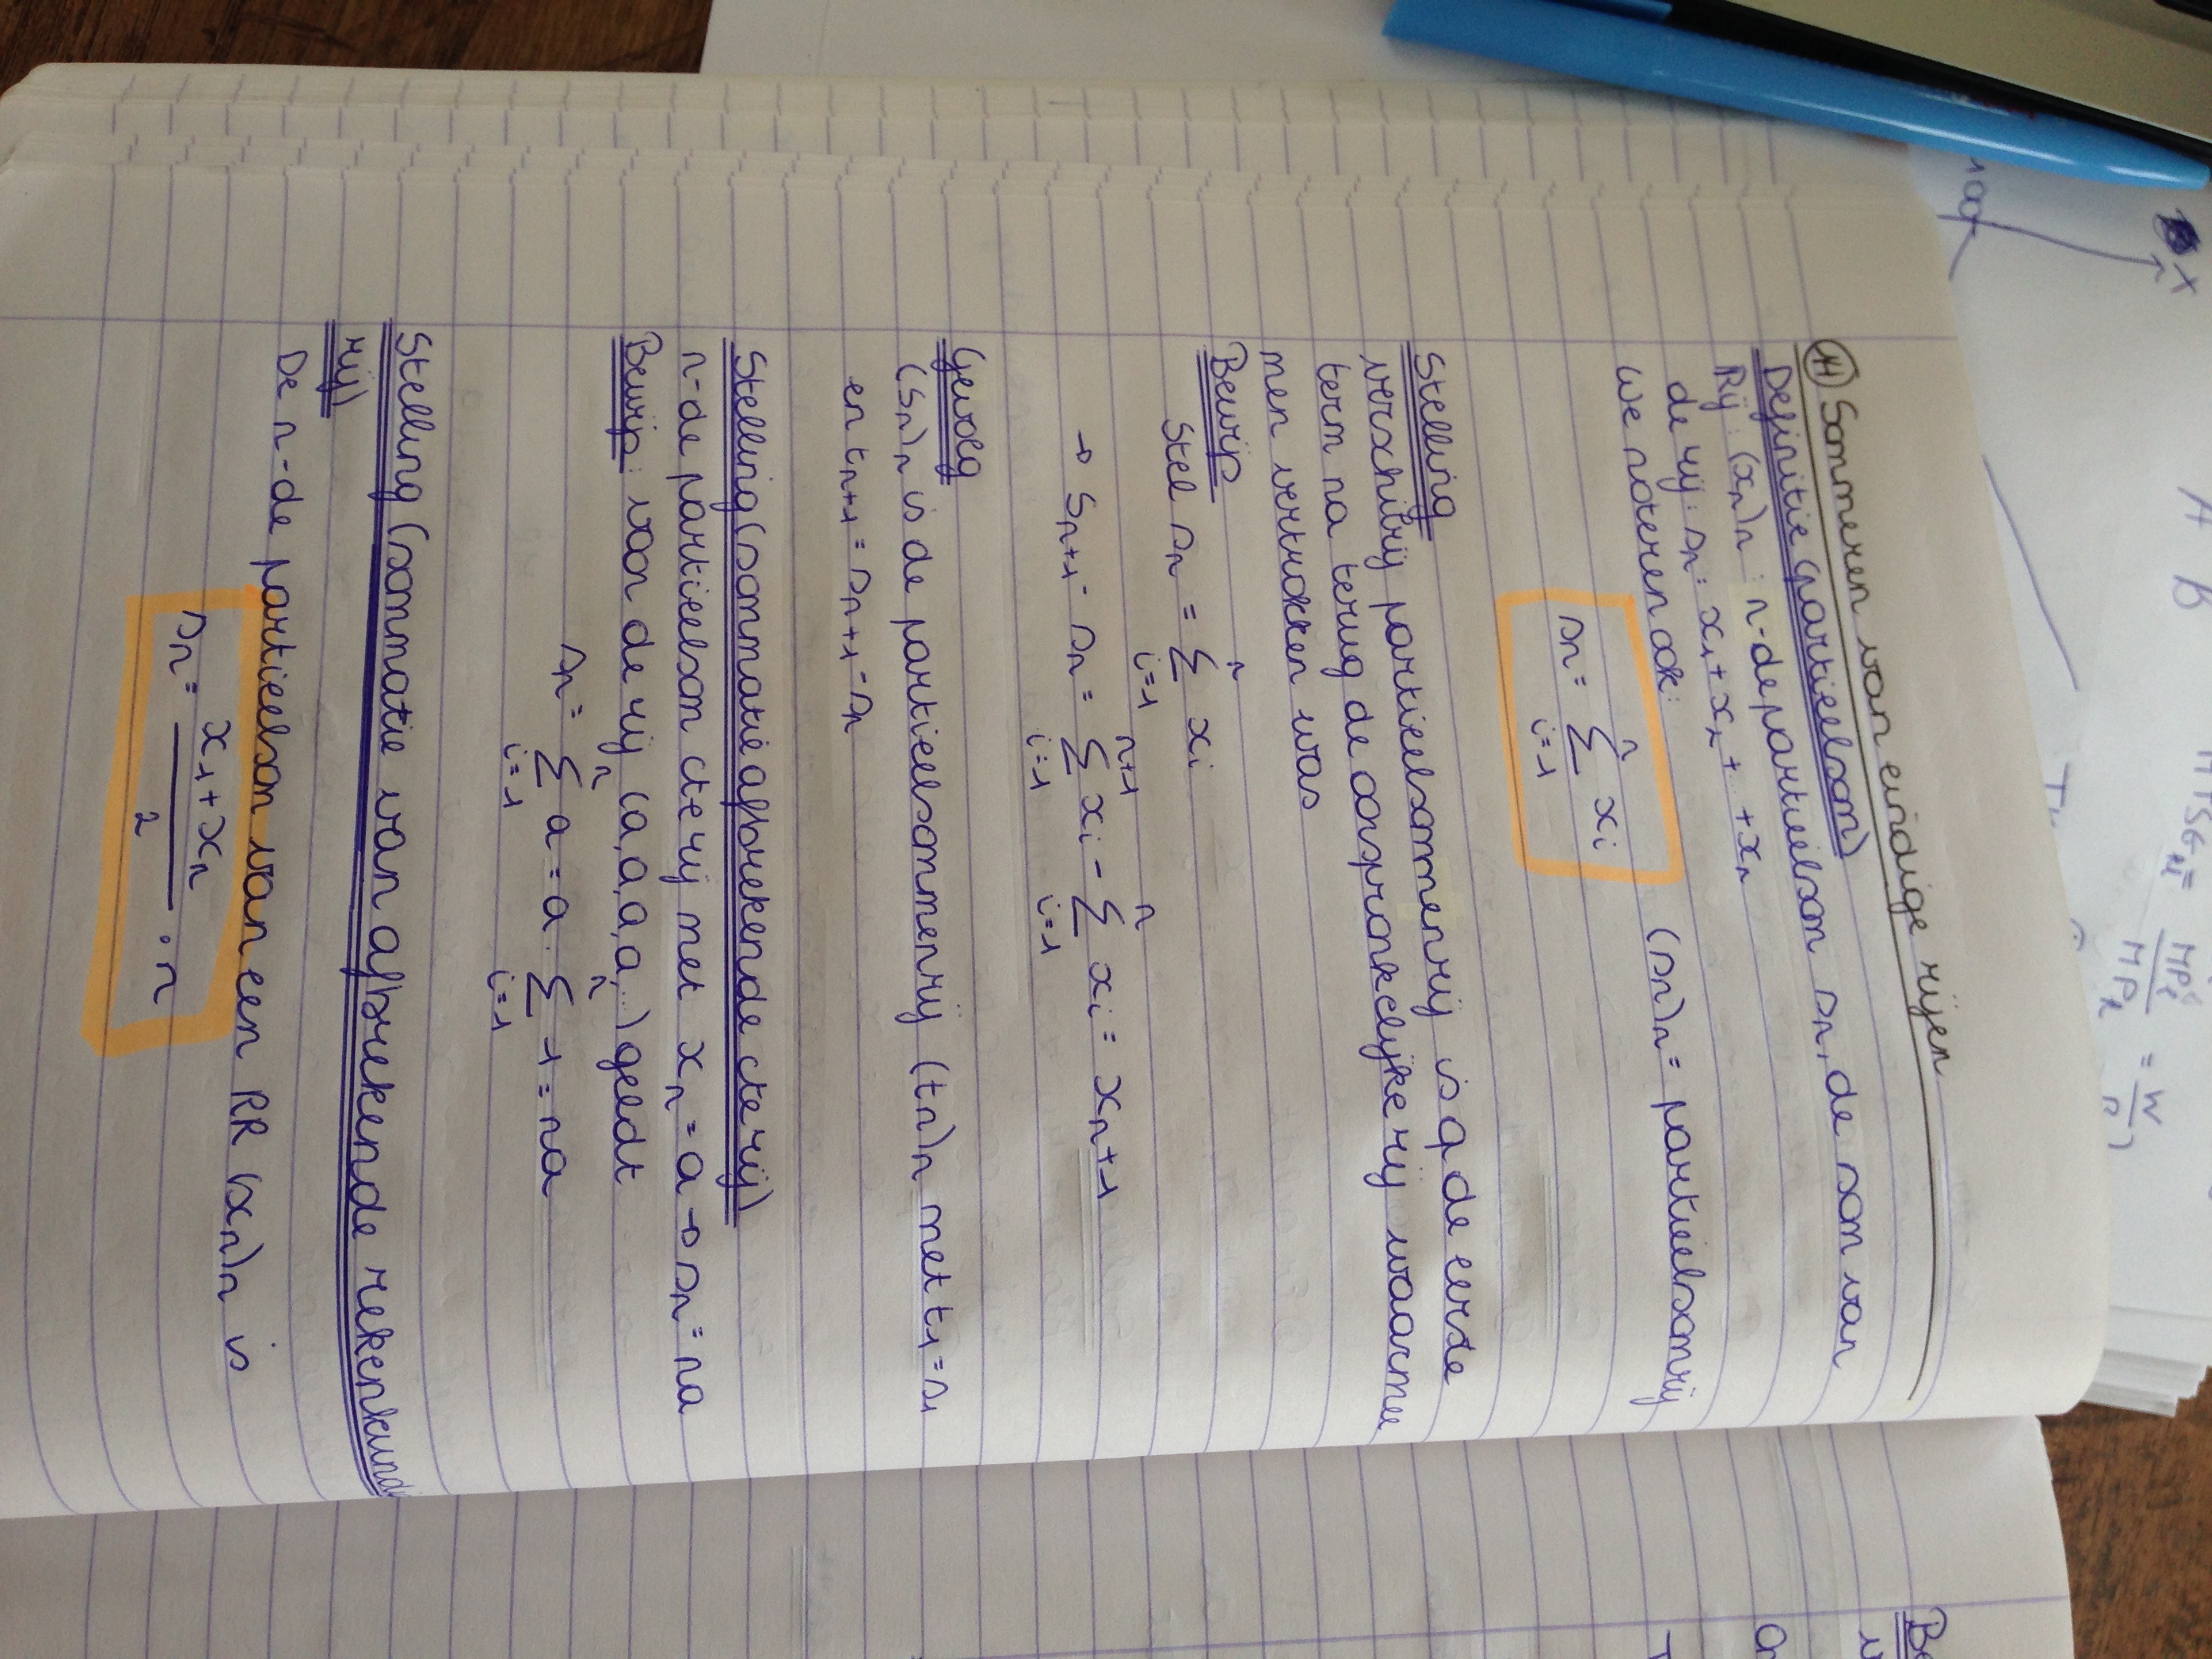 (H) Sommeren van eindige rijen
Definitie (partieelsom)
Rij: (xn)n : n-de partieelsom sn, de som van
de rij: sn: x1+x2+ +xn
We noteren ook:
sn = n∑i=1 xi (sn)n = partieelsomrij
Stelling
verschilrij partieelsommenrij is q de eerste
term na terug de oorspronkelijke rij waarmee
men vertrokken was
Bewijs
Stel sn = n∑i=1 xi
→ sn+1 - sn = n+1∑i=1 xi - n∑i=1 xi = xn+1
Gevolg
(sn)n is de partieelsommenrij (tn)n met t1 = s1
en tn+1 = sn+1 - sn
Stelling (sommatie afbrekende cte rij)
n-de partieelsom cte rij met xn = a → sn = na
Bewijs: voor de rij (a,a,a,a,...) geldt
sn = n∑i=1 a = a · n∑i=1 1 = na
Stelling (sommatie van afbrekende rekenkundi
rij)
De n-de partieelsom van een RR (xn)n is
sn = x1 + xn / 2 · n
A B
MPi
MPz
= W
Be